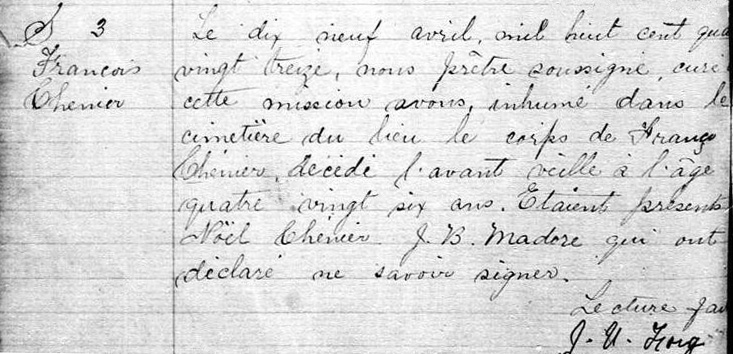 S 3
François
Chenier
Le dix neuf avril, mil huit cent qua
vingt treize, nous prêtre soussigné, curé
cette mission avons, inhumé dans le
cimetière du lieu le corps de Franço
Chénier, décédé l'avant veille à l'âge
quatre vingt six ans. Etaient présents
Noël Chénier J. B. Madore qui ont
déclaré ne savoir signer.
Lecture fai
J. U.